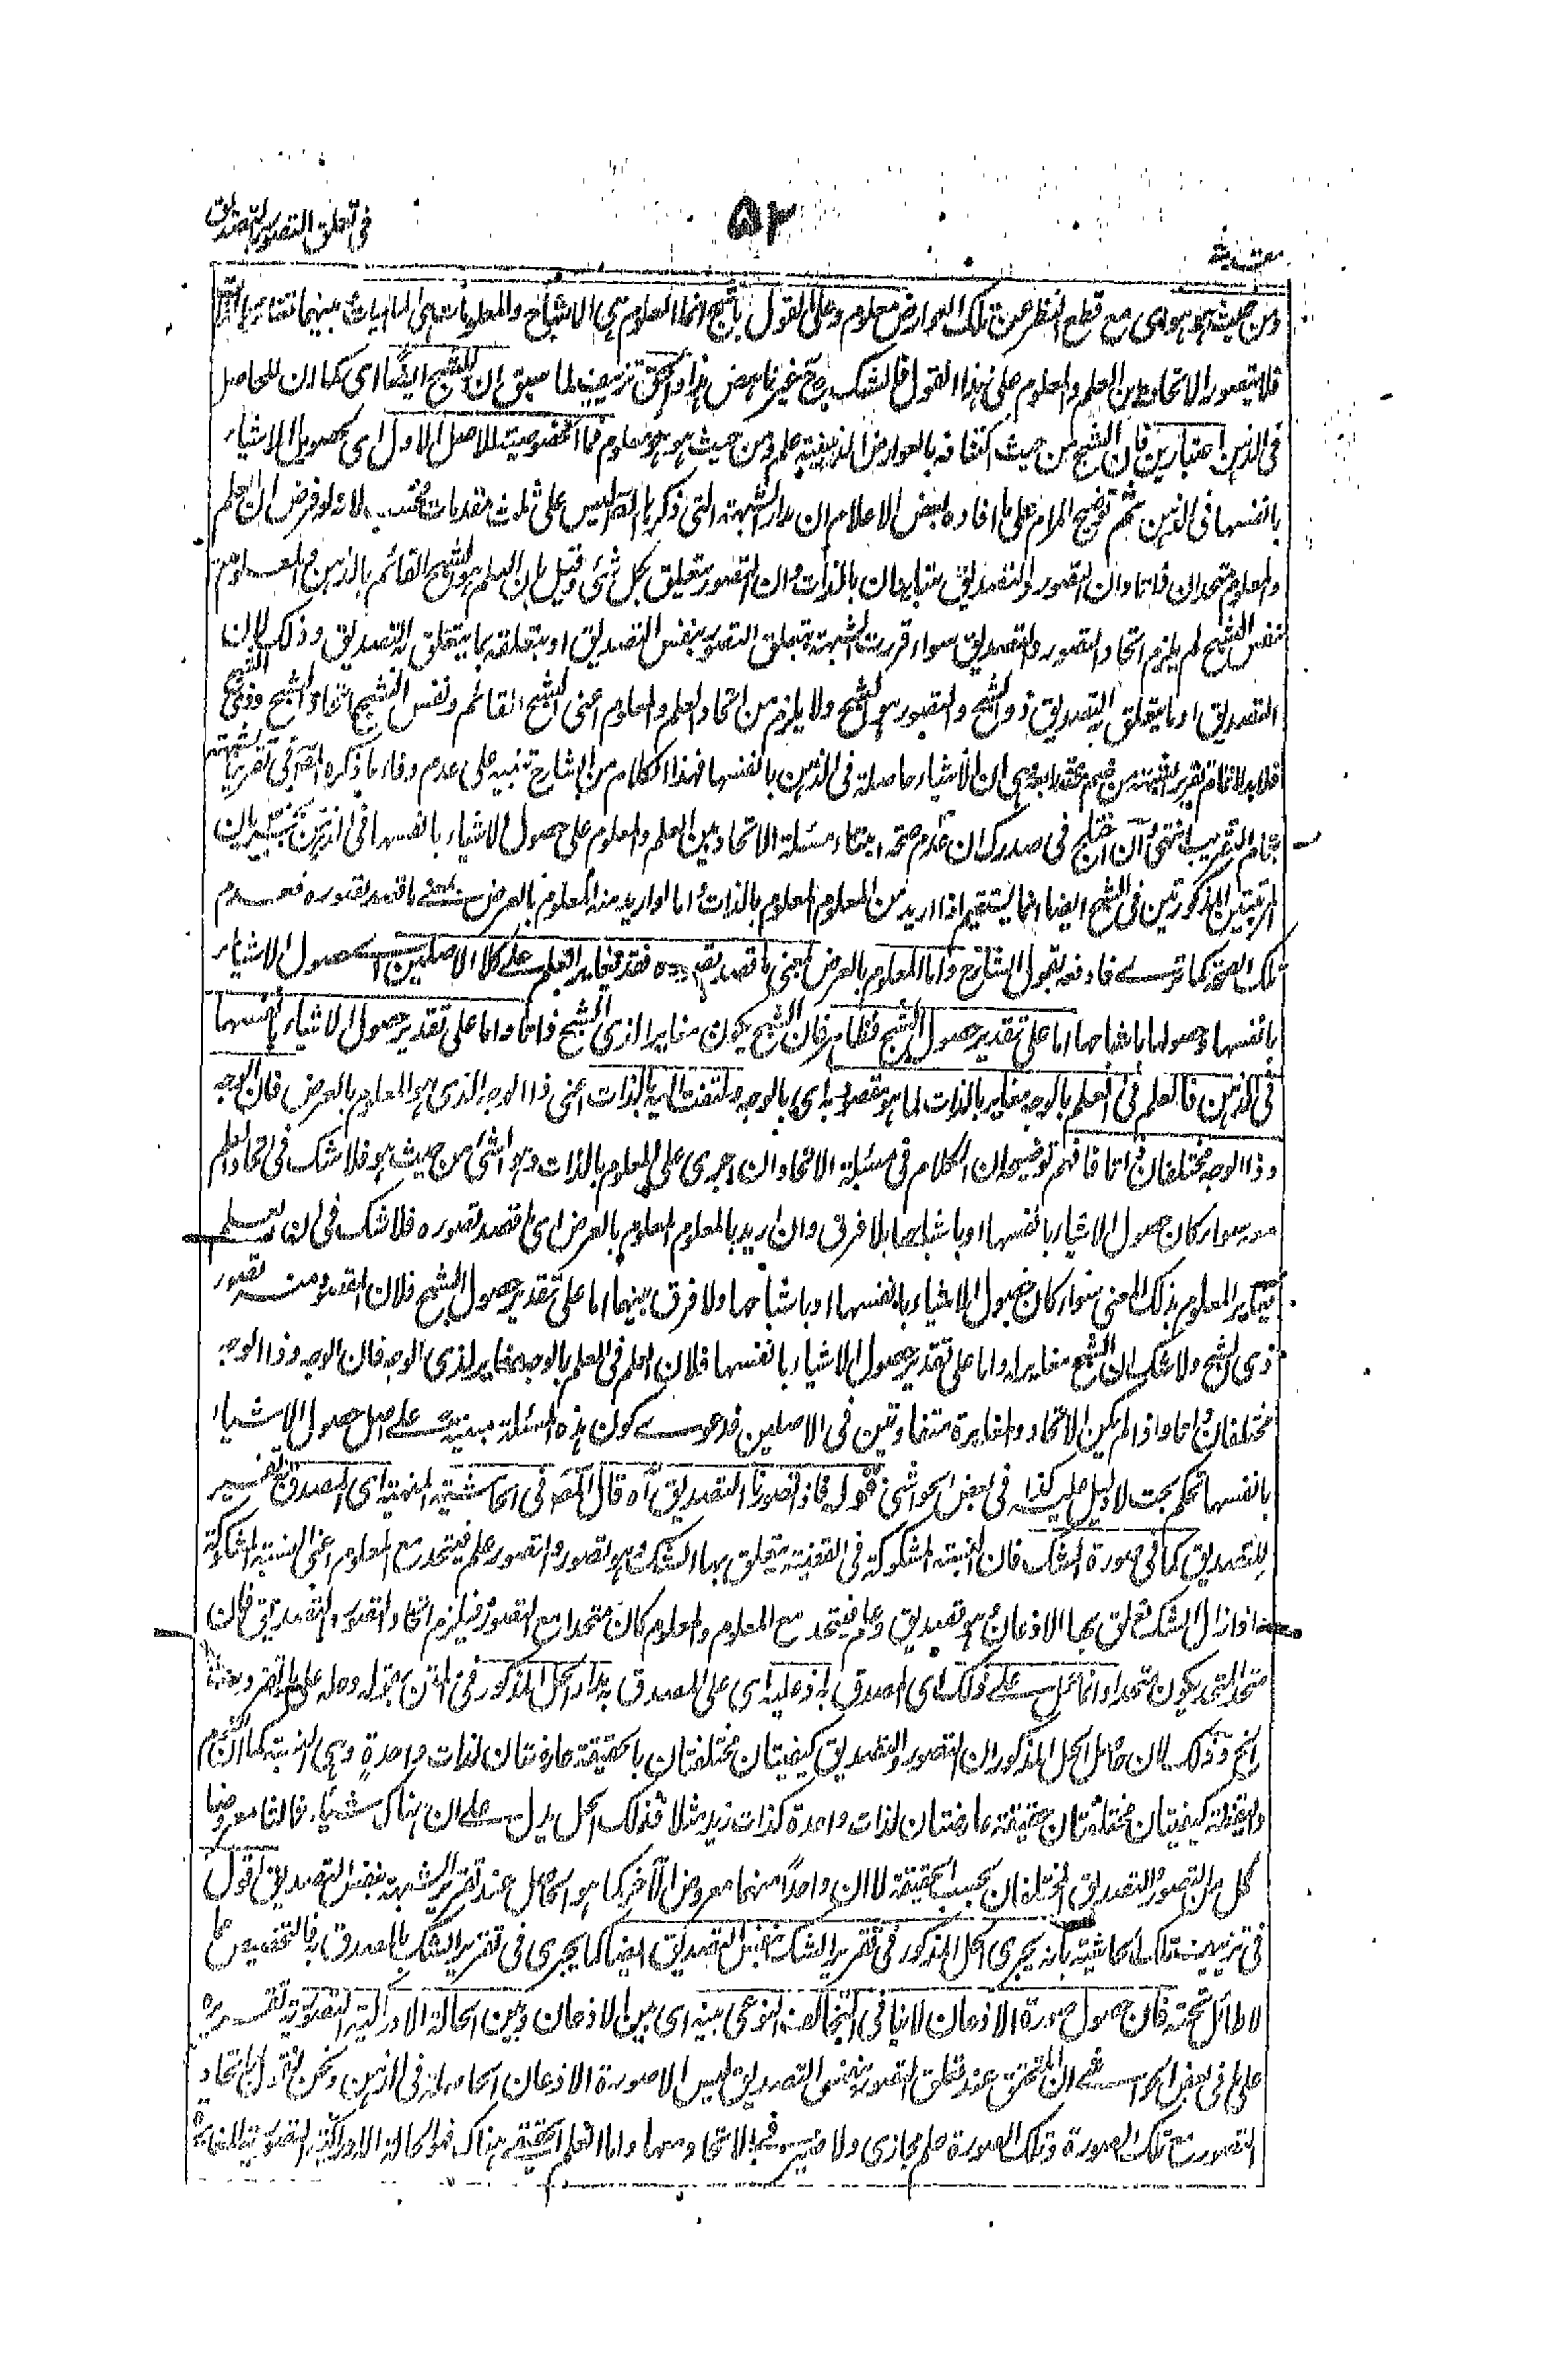 مقدمة
۵۳
فى تعلق التصور بالتصديق
ومن حيث هو هو اى مع قطع النظر عن تلك العوارض معلوم وعلى القول بالشبح انما العلوم هى الاشباح والمعلومات هى الماهيات بينهما تغاير بالذات
فلا يتصور الاتحاد بين العلم والمعلوم على هذا القول فالشك ح غير ناهض هذا والحق تزييف لما سبق ان للشبح ايضا اى كما ان للحاصل
فى الذهن اعتبارين فان الشبح من حيث اكتنافه بالعوارض الذهنية علم ومن حيث هو هو معلوم فما الخصوصية للاصل الاول اى حصول الاشياء
بانفسها فى الذهن ثم توضيح المرام على ما افاده بعض الاعلام ان مدار الشبهة التى ذكرها المص ليس على ثلث مقدمات فحسب لانه لو فرض ان العلم
والمعلوم متحدان ذاتا وان التصور والتصديق متباينان بالذات وان التصور يتعلق بكل شئ وقيل بان العلم هو الشبح القائم بالذهن والمعلوم
نفس الشبح لم يلزم اتحاد التصور والتصديق سواء قررت الشبهة بتعلق التصور بنفس التصديق او بتعلقه بما يتعلق به التصديق وذلك لان
التصديق او ما يتعلق به التصديق ذو الشبح والتصور هو الشبح ولا يلزم من اتحاد العلم والمعلوم اعنى الشبح القائم ونفس الشبح اتحاد الشبح وذى الشبح
فلا بد لاتمام تقرير الشبهة من ضم مقدمة رابعة هى ان الاشياء حاصلة فى الذهن بانفسها فهذا الكلام من الشارح تنبيه على عدم وفاء ما ذكره المص فى تقرير الشبهة
بتمام التقريب انتهى آن اختلج فى صدرك ان عدم صحة ابتناء مسئلة الاتحاد بين العلم والمعلوم على حصول الاشياء بانفسها فى الذهن بجريان
المرتبتين المذكورتين فى الشبح ايضا انما يستقيم اذا اريد من المعلوم المعلوم بالذات واما لو اريد منه المعلوم بالعرض يعنى ما قصد تصوره فعدم
تلك الصحة كما ترى فادفعه بقول الشارح واما المعلوم بالعرض بمعنى ما قصد تصوره فقد تغاير العلم على كلا الاصلين اى حصول الاشياء
بانفسها وحصولها باشباحها اما على تقدير حصول الشبح فظاهر فان الشبح يكون مغايرا لذى الشبح ذاتا واما على تقدير حصول الاشياء بانفسها
فى الذهن فالعلم فى العلم بالوجه مغاير بالذات لما هو مقصود به اى بالوجه وملتفت اليه بالذات اعنى ذا الوجه الذى هو المعلوم بالعرض فان الوجه
وذا الوجه مختلفان ذاتا فافهم توضيحه ان الكلام فى مسئلة الاتحاد ان اجرى على المعلوم بالذات وهو الشئ من حيث هو فلا شك فى اتحاد العلم
معه سواء كان حصول الاشياء بانفسها او باشباحها بلا فرق وان اريد بالمعلوم المعلوم بالعرض اى ما قصد تصوره فلا شك فى ان العلم
يغاير المعلوم بذلك المعنى سواء كان حصول الاشياء بانفسها او باشباحها ولا فرق بينهما اما على تقدير حصول الشبح فلان المقصود منه تصور
ذى الشبح ولا شك ان الشبح مغاير له واما على تقدير حصول الاشياء بانفسها فلان العلم فى العلم بالوجه مغاير لذى الوجه فان الوجه وذا الوجه
مختلفان ذاتا واذا لم يكن الاتحاد والمغايرة متفاوتين فى الاصلين فدعوى كون هذه المسئلة مبنية على اصل حصول الاشياء
بانفسها تحكم بحت لا دليل عليه كذا فى بعض الحواشى قوله فاذا تصورنا التصديق آه قال المص فى الحاشية المنهية اى المصدق به تفسير
للتصديق كما فى صورة الشك فان النسبة المشكوكة فى القضية يتعلق بها الشك وهو تصور والتصور علم فيتحد مع المعلوم اعنى النسبة المشكوكة
فاذا زال الشك تعلق بها الاذعان وهو تصديق وعلم فيتحد مع المعلوم والمعلوم كان متحدا مع التصور فيلزم اتحاد التصور والتصديق فان
متحد المتحد يكون متحدا وانما حمل على ذلك اى المصدق به اذ عليه اى على المصدق به مدار الحل المذكور فى المتن بقوله وحله على ما تفردت
الخ وذلك لان حاصل الحل المذكور ان التصور والتصديق كيفيتان مختلفتان بالحقيقة عارضتان لذات واحدة وهى النسبة كما ان النوم
واليقظة كيفيتان مختلفتان حقيقة عارضتان لذات واحدة كذات زيد مثلا فذلك الحل يدل على ان هناك شيئا ثالثا معروضا
لكل من التصور والتصديق المختلفان بحسب الحقيقة لا ان واحدا منهما معروض الآخر كما هو الحاصل عند تقرير الشبهة بنفس التصديق اقول
فى تزييف تلك الحاشية بانه يجرى الحل المذكور فى تقرير الشك بنفس التصديق ايضا كما يجرى فى تقرير الشك بالمصدق به فالتخصيص مما
لا طائل تحته فان حصول صورة الاذعان لا ينافى التخالف النوعى بينه اى بين الاذعان وبين الحالة الادراكية التصورية تقريره
على ما فى بعض الحواشى ان المتحقق عند تعلق التصور بنفس التصديق ليس الا صورة الاذعان الحاصلة فى الذهن ونحن نقول باتحاد
التصور مع تلك الصورة وتلك الصورة علم مجازى ولا ضير فى الاتحاد معها واما العلم الحقيقى هناك فهو الحالة الادراكية التصورية المغايرة